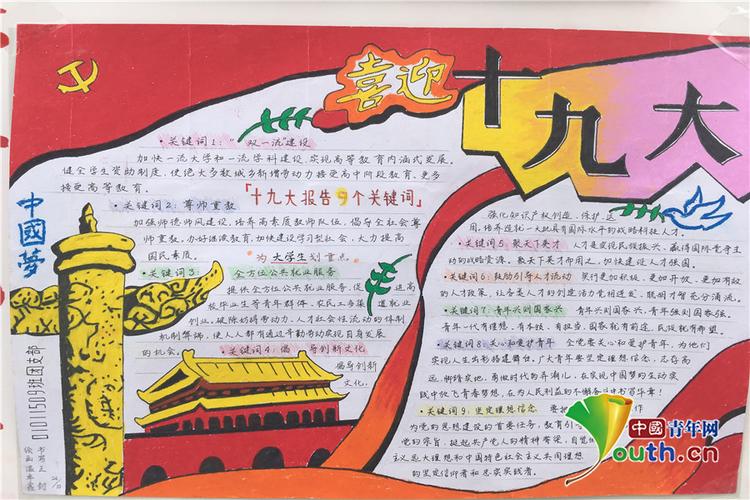 喜迎十九大
中國夢
·关键词1:“双一流”建设
加快一流大学和一流学科建设,实现高等教育内涵式发展。
健全学生资助制度,使绝大多数城乡新增劳动力接受高中阶段教育、更多
接受高等教育。
「十九大报告9个关键词」
为大学生划重点
·关键词2:尊师重教
加强师德师风建设,培养高素质教师队伍,倡导全社会尊
师重教。办好继续教育,加快建设学习型社会,大力提高
国民素质。
·关键词3:全方位公共就业服务
提供全方位公共就业服务,促进高
校毕业生等青年群体、农民工多渠道就业
创业。破除妨碍劳动力、人才社会性流动的体制
机制弊端,使人人都有通过辛勤劳动实现自身发展
的机会。
·关键词4:倡导创新文化
倡导创新
文化,
强化知识产权创造、保护、运
用。培养造就一大批具有国际水平的战略科技人才。
·关键词5:聚天下英才 人才是实现民族振兴、赢得国际竞争主
动的战略资源。聚天下英才而用之,加快建设人才强国。
·关键词6:鼓励引导人才流动 实行更加积极、更加开放、更加有效
的人才政策,让各类人才的创造活力竞相迸发、聪明才智充分涌流。
·关键词7:青年兴则国家兴 青年兴则国家兴,青年强则国家强。
青年一代有理想、有本领、有担当,国家就有前途,民族就有希望。
·关键词8:关心和爱护青年 全党要关心和爱护青年,为他们
实现人生出彩搭建舞台。广大青年要坚定理想信念,志存高
远,脚踏实地,勇做时代的弄潮儿,在实现中国梦的生动实
践中放飞青春梦想,在为人民利益的不懈奋斗中书写华章!
·关键词9:坚定理想信念 要把
作
为党的思想建设的首要任务,教育引
党的宗旨,挺起共产党人的精神脊梁,自觉
主义远大理想和中国特色社会主义共同理想
的坚定信仰者和忠实实践者。
01011509班团支部
中國青年网
Youth.cn